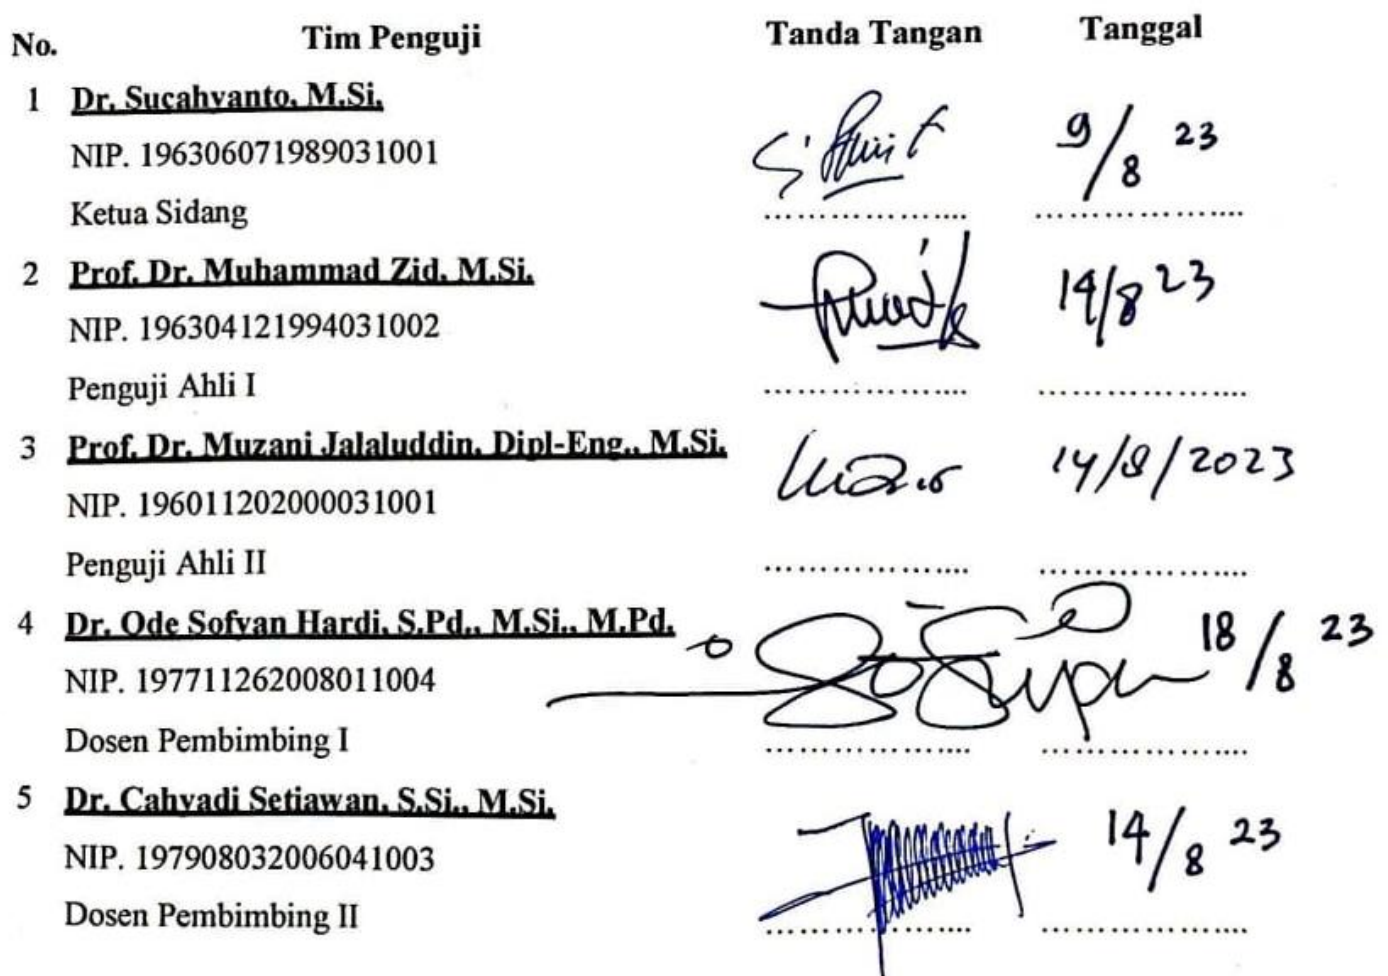 No. Tim Penguji Tanda Tangan Tanggal
1 Dr. Sucahyanto, M.Si.
NIP. 196306071989031001 9/8 23
Ketua Sidang ....................
2 Prof. Dr. Muhammad Zid, M.Si.
NIP. 196304121994031002 14/8 23
Penguji Ahli I
3 Prof. Dr. Muzani Jalaluddin, Dipl-Eng., M.Si.
NIP. 196011202000031001 14/8/2023
Penguji Ahli II
4 Dr. Ode Sofyan Hardi, S.Pd., M.Si., M.Pd.
NIP. 197711262008011004 18/8 23
Dosen Pembimbing I
5 Dr. Cahyadi Setiawan, S.Si., M.Si.
NIP. 197908032006041003 14/8 23
Dosen Pembimbing II